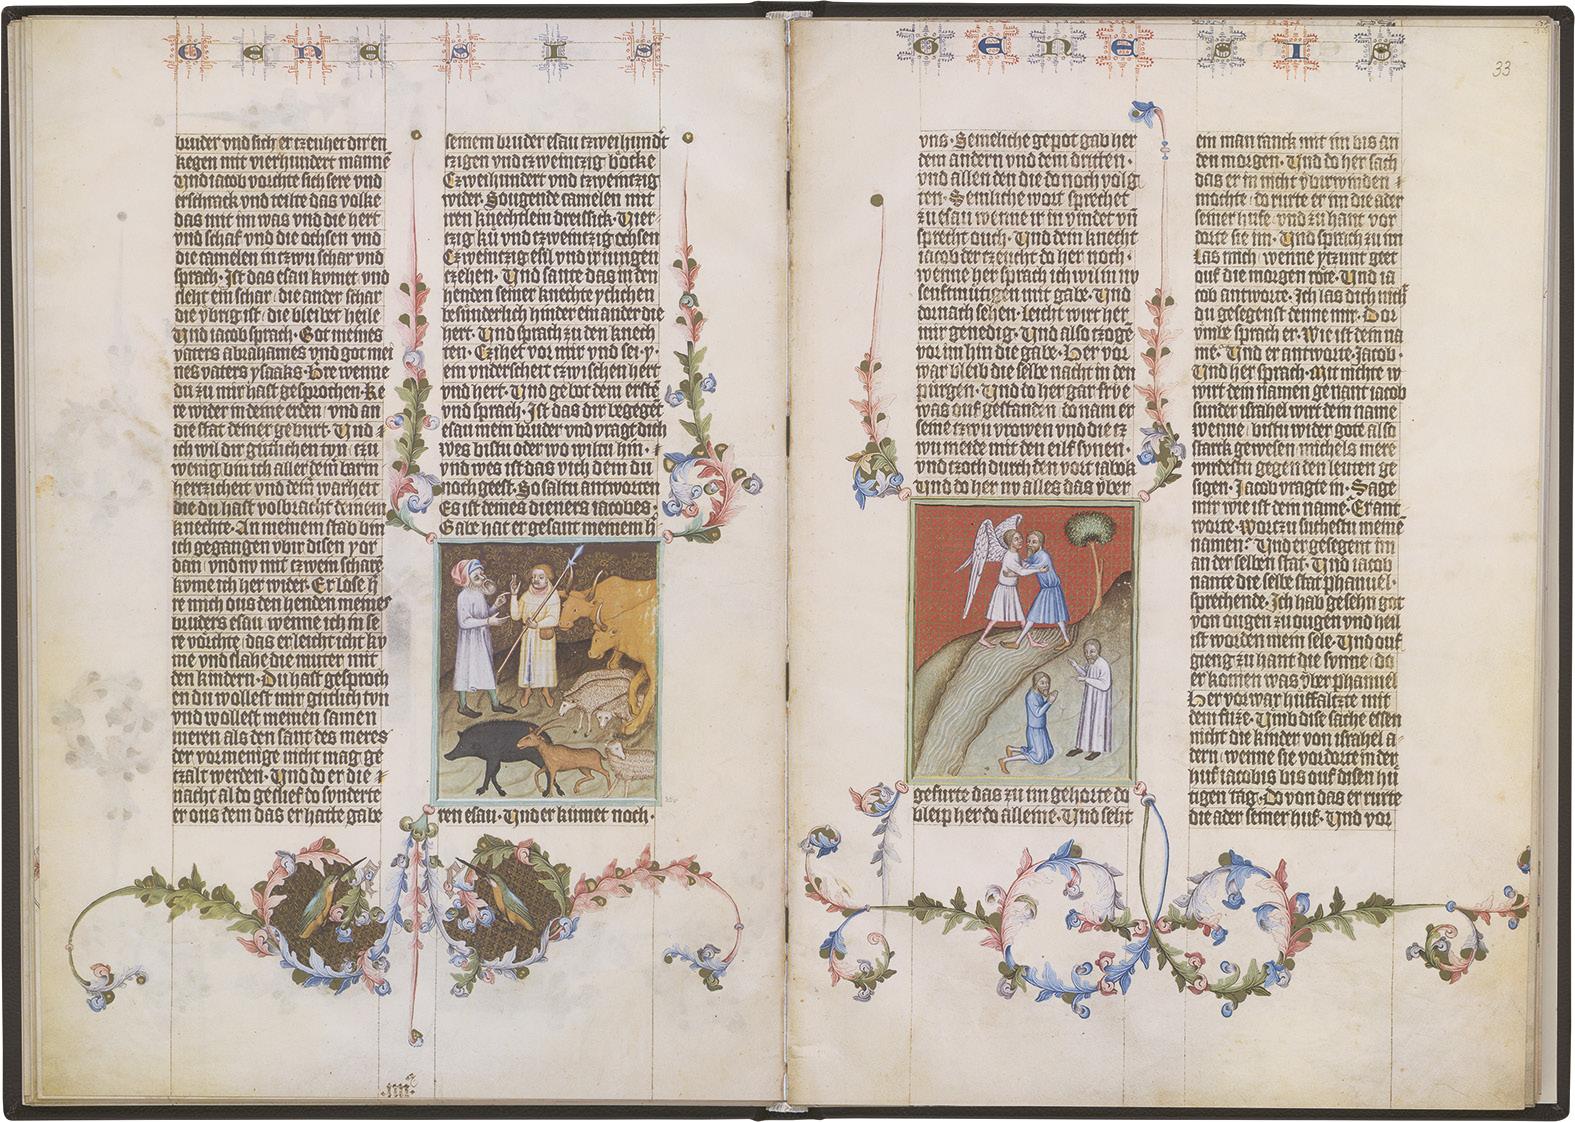 GENESIS
bruder vnd sich er czeuhet dir en
kegen mit vierhundert manne
Vnd iacob vorchte sich sere vnd
erschrack vnd teilte das volke
das mit im was vnd die hert
vnd schaf vnd die ochsen vnd
die camelen in czwu schar vnd
sprach· Ist das esau kumet vnd
slehet ein schar die ander schar
die vbrig ist die bleibet heile
Vnd iacob sprach· Got meines
vaters abrahames vnd got mei
nes vaters ysaaks· Hre wenne
du zu mir hast gesprochen· Ke
re wider in deine erden vnd an
die stat deiner geburt· Vnd
ich wil dir gutlichen tun czu
wenig bin ich aller deim barm
herczichert vnd deim warheit
die du hast volbracht deinem
knechte· An meinem stab bin
ich gegangen vbir disen yor
dan vnd nv mit czwein scharn
kume ich her wider· Er lose h
re mich ous den henden meines
bruders esau wenne ich in se
re vorchte das er leicht icht ku
me vnd slahe die muter mit
den kindern· Du hast gesproch
en du wollest mir gutlich tun
vnd wollest meinen samen
meren als den sant des meres
der vor menige nicht mag ge
czalt werden· Vnd do er die
nacht aldo geslief do sunderte
er ous dem das er hatte gabe
seinem bruder esau czweihundert
czigen vnd czweinczig bocke
Czweihundert vnd czweinczig
wider Sougende camelen mit
iren knechtlein dreissick· Vier
czig ku vnd czweinczig ochsen
Czweinczig esil vnd ir iungen
czehen· Vnd sante das in den
henden seiner knechte yclichen
besunderlich hinder ein ander die
hert· Vnd sprach zu den knech
ten· Czihet vor mir vnd sei· y·
ein vnderscheit czwischen hert
vnd hert· Vnd gebot dem ersten
vnd sprach· Ist das dir begeget
esau mein bruder vnd vraget dich
wes bistu oder wo wiltu hin·
vnd wes ist das vich dem du
noch geest· So saltu antworten
Es ist deines dieners iacobes·
Gabe hat er gesant meinem h
ren esau· Vnd er kumet noch·
GENESIS
33
vns· Semeliche gepot gab her
dem andern vnd dem dritten·
vnd allen den die do noch volg
ten· Semliche wort sprechet
zu esau wenne ir in vindet vn
sprecht ouch· Vnd dein knecht
iacob der czeucht do her noch·
wenne her sprach ich wil in nv
senftmutigen mit gabe· Vnd
dornach sehen· leicht wirt her
mir genedig· Vnd also czoge
vor im hin die gabe· Her vor
war bleib die selbe nacht in den
purgen· Vnd do her gar frue
was ouf gestanden do nam er
seine czwu vrowen vnd die cz
wu meide mit den eilf sunen·
vnd czoch durch den vort iabok
Vnd do her nv alles das vber
gefurte das zu im gehorte do
bleip her do alleine· Vnd seht
ein man ranck mit im bis an
den morgen· Vnd do her sach
das er in nicht vbirwinden
mochte do rurte er im die ader
seiner hufe vnd zu hant vor
dorte sie im· Vnd sprach zu im
Las mich wenne yczunt geet
ouf die morgen rote· Vnd ia
cob antworte· Ich las dich nicht
du gesegenst denne mir· Dor
vmbe sprach er· Wie ist dein na
me· Vnd er antworte· Jacob·
Vnd her sprach· Mit nichte w
wirt dein namen genant iacob
sunder israhel wirt dein name
wenne bistu wider gote also
starck gewesen michels mere
wirdestu gegen den leuten ge
sigen· Jacob vragte in· Sage
mir wie ist dein name· Er ant
worte· Worczu suchestu meinen
namen· Vnd er gesegent im
an der selben stat· Vnd iacob
nante die selbe stat phanuel·
sprechende· Ich hab gesehn got
von ougen zu ougen vnd heil
ist worden mein sele· Vnd ouf
gieng zu hant die sunne do
er komen was vber phanuel
Her vorwar huffalczte mit
dem fuze· Vmb dise sache essen
nicht die kinder von israhel a
dern wenne sie vordorte in der
huf iacobis bis ouf disen hu
tigen tag· Do von das er rurte
die ader seiner huf· Vnd vor